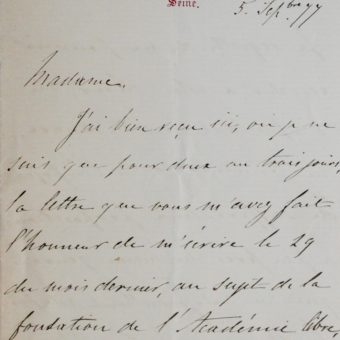 Seine.
5. Sepbre 77
Madame.
J'ai bien reçu ici, où je ne
suis que pour deux ou trois jours,
la lettre que vous m'avez fait
l'honneur de m'écrire le 29
du mois dernier, au sujet de la
fondation de l'Académie libre,